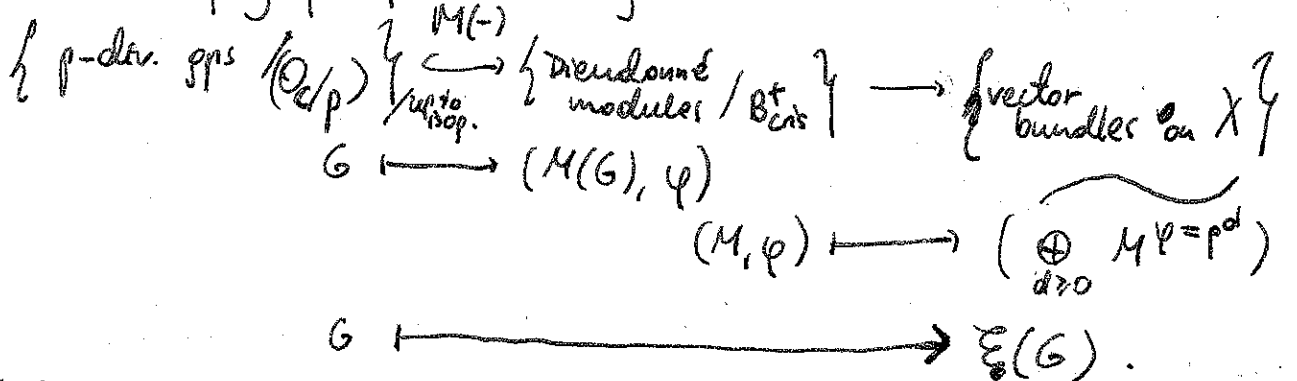 { p-div. gps /(O_C/p) }/up to isog. M(-) ↪ { Dieudonné modules / B^+_cris } → { vector bundles on X }
G ↦ (M(G), φ)
(M, φ) ↦ ( ⊕_{d≥0} M^{φ=p^d} )~
G ↦ ξ(G).